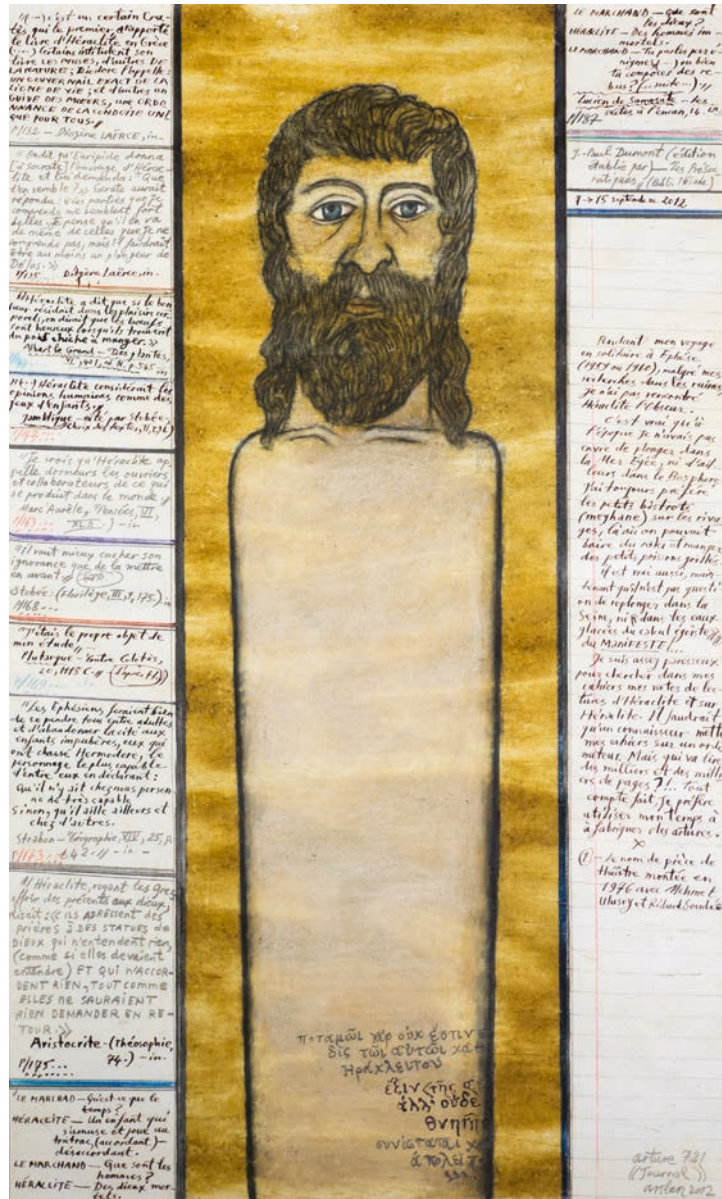 "(...) c'est un certain Cra-
tès qui le premier, apporte
le livre d'Héraclite en Grèce
(...) Certains intitulent son
livre LES MUSES, d'autres DE
LA NATURE; Diodore l'appelle:
UN GOUVERNAIL EXACT DE LA
LIGNE DE VIE; et d'autres UN
GUIDE DES MŒURS, UNE ORDO
NNANCE DE LA CONDUITE UNI
QUE POUR TOUS."
P/132 – Diogène LAËRCE, in-
"Ondit qu'Euripide donna
[à Socrate] l'ouvrage d'Hérac-
lite et lui demanda: "Que
t'en semble?" Socrate aurait
répondu: «Les parties que je
comprends me semblent fort
belles. Je pense qu'il en va
de même de celles que je ne
comprends pas, mais il faudrait
être au moins un plongeur de
Délos.»
P/135 Diogène Laërce, in-
Héraclite a dit que si le bon
heur résidait dans les plaisirs cor
porels, on dirait que les bœufs
sont heureux lorsqu'ils trouvent
du pois chiche à manger.»
Albert le Grand – Des plantes,
VI, 401, p. 545
"(...) Héraclite considérait les
opinions humaines comme des
jeux d'enfants."
Jamblique – cité par Stobée,
(choix de textes, II,
"Je crois qu'Héraclite ap
pelle dormeurs les ouvriers
et collaborateurs de ce qui
se produit dans le monde."
Marc Aurèle, "Pensées, VI,
XLII.) – in
"Il vaut mieux cacher son
ignorance que de la mettre
en avant."
Stobée: (Florilège, III, 1, 175) in
P/168...
"J'étais le propre objet de
mon étude"
Plutarque – Contre Colotès,
20, 1118 C."
P/169...
"Les Ephésiens feraient bien
de se pendre tous entre adultes
et d'abandonner la cité aux
enfants impubères, eux qui
ont chassé Hermodore, le
personnage le plus capable
d'entre eux en déclarant:
Qu'il n'y ait chez nous person
ne de très capable
Sinon, qu'il aille ailleurs et
chez d'autres.
Strabon – "Géographie, XIV, 25, p.
P/173 642." – in –
"Héraclite, voyant les Grecs
offrir des présents aux dieux,
disait: «ILS ADRESSENT DES
PRIÈRES À DES STATUES de
DIEUX qui n'entendent rien,
(comme si elles devaient
entendre) ET QUI N'ACCOR-
DENT RIEN, TOUT COMME
ELLES NE SAURAIENT
RIEN DEMANDER EN RE-
TOUR.»
Aristocrite – (Théosophie,
74.) – in-
P/175...
"LE MARCHAD – Qu'est-ce que le
temps?
HÉRACLITE – Un enfant qui
s'amuse et joue au
trictrac, (accordant)
désaccordant.
LE MARCHAND – Que sont les
hommes?
HÉRACLITE – Des dieux mor
tels.
ποταμῶι γὰρ οὐκ ἔστιν
δὶς τῶι αὐτῶι
Ἡράκλειτον
ἕξιν (τῆς
ἀλλ' οὐδὲ
θνητῆς
συνίσταται
ἀπολείπ
LE MARCHAND – Que sont
les dieux?
HÉRACLITE – Des hommes im
mortels.
LE MARCHAND – Tu parles par é
nigmes (...) ou bien
tu composes des ré-
bus? (...suite...)"
Lucien de Samosate – Les
vies à l'encan, 14.
P/187
J.-Paul Dumont (édition
établie par) – Les Préso
cratiques,
7 → 15 septembre 2012
Pendant mon voyage
en solitaire à Ephèse
(1959 ou 1960), malgré mes
recherches dans les ruines
je n'ai pas rencontré
Héraclite l'Obscur.
C'est vrai qu'à
l'époque je n'avais pas
envie de plonger dans
la Mer Egée, ni d'ail
leurs dans le Bosphore
J'ai toujours préféré
les petits bistrots
(meyhane) sur les riva
ges, là où on pouvait
boire du raki et manger
des petits poissons grillés.
Il est vrai aussi, main
tenant qu'il n'est pas questi
on de replonger dans la
Seine, ni dans les eaux
glacées du calcul égoïste
du MANIFESTE...
Je suis assez paresseux
pour chercher dans mes
cahiers mes notes de lec
tures d'Héraclite et sur
Héraclite. Il faudrait
qu'un connaisseur mette
mes cahiers sur un ordi
nateur. Mais qui va lire
des milliers et des milli
ers de pages?!. Tout
compte fait je préfère
utiliser mon temps à
à fabriquer des artures.
x
(1) – Le nom de pièce de
théâtre montée en
1976 avec Mehmet
Ulusoy et
arture 731
((Journal))
arslan 2012